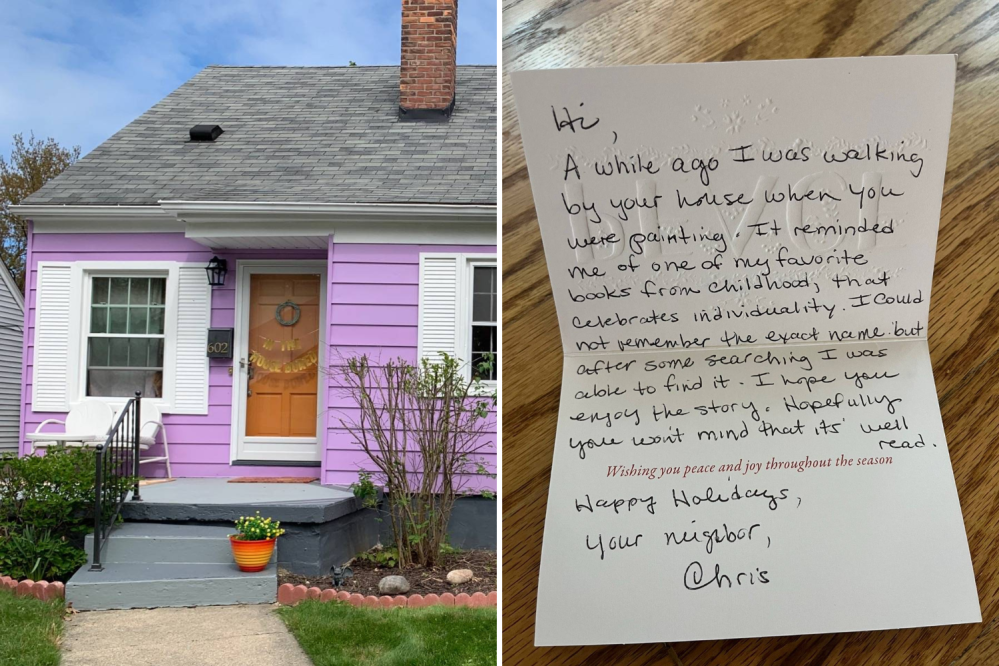 602
Hi,
A while ago I was walking
by your house when you
were painting. It reminded
me of one of my favorite
books from childhood, that
celebrates individuality. I could
not remember the exact name but
after some searching I was
able to find it. I hope you
enjoy the story. Hopefully
you won't mind that its' well
read.
Wishing you peace and joy throughout the season
Happy Holidays,
Your neighbor,
Chris